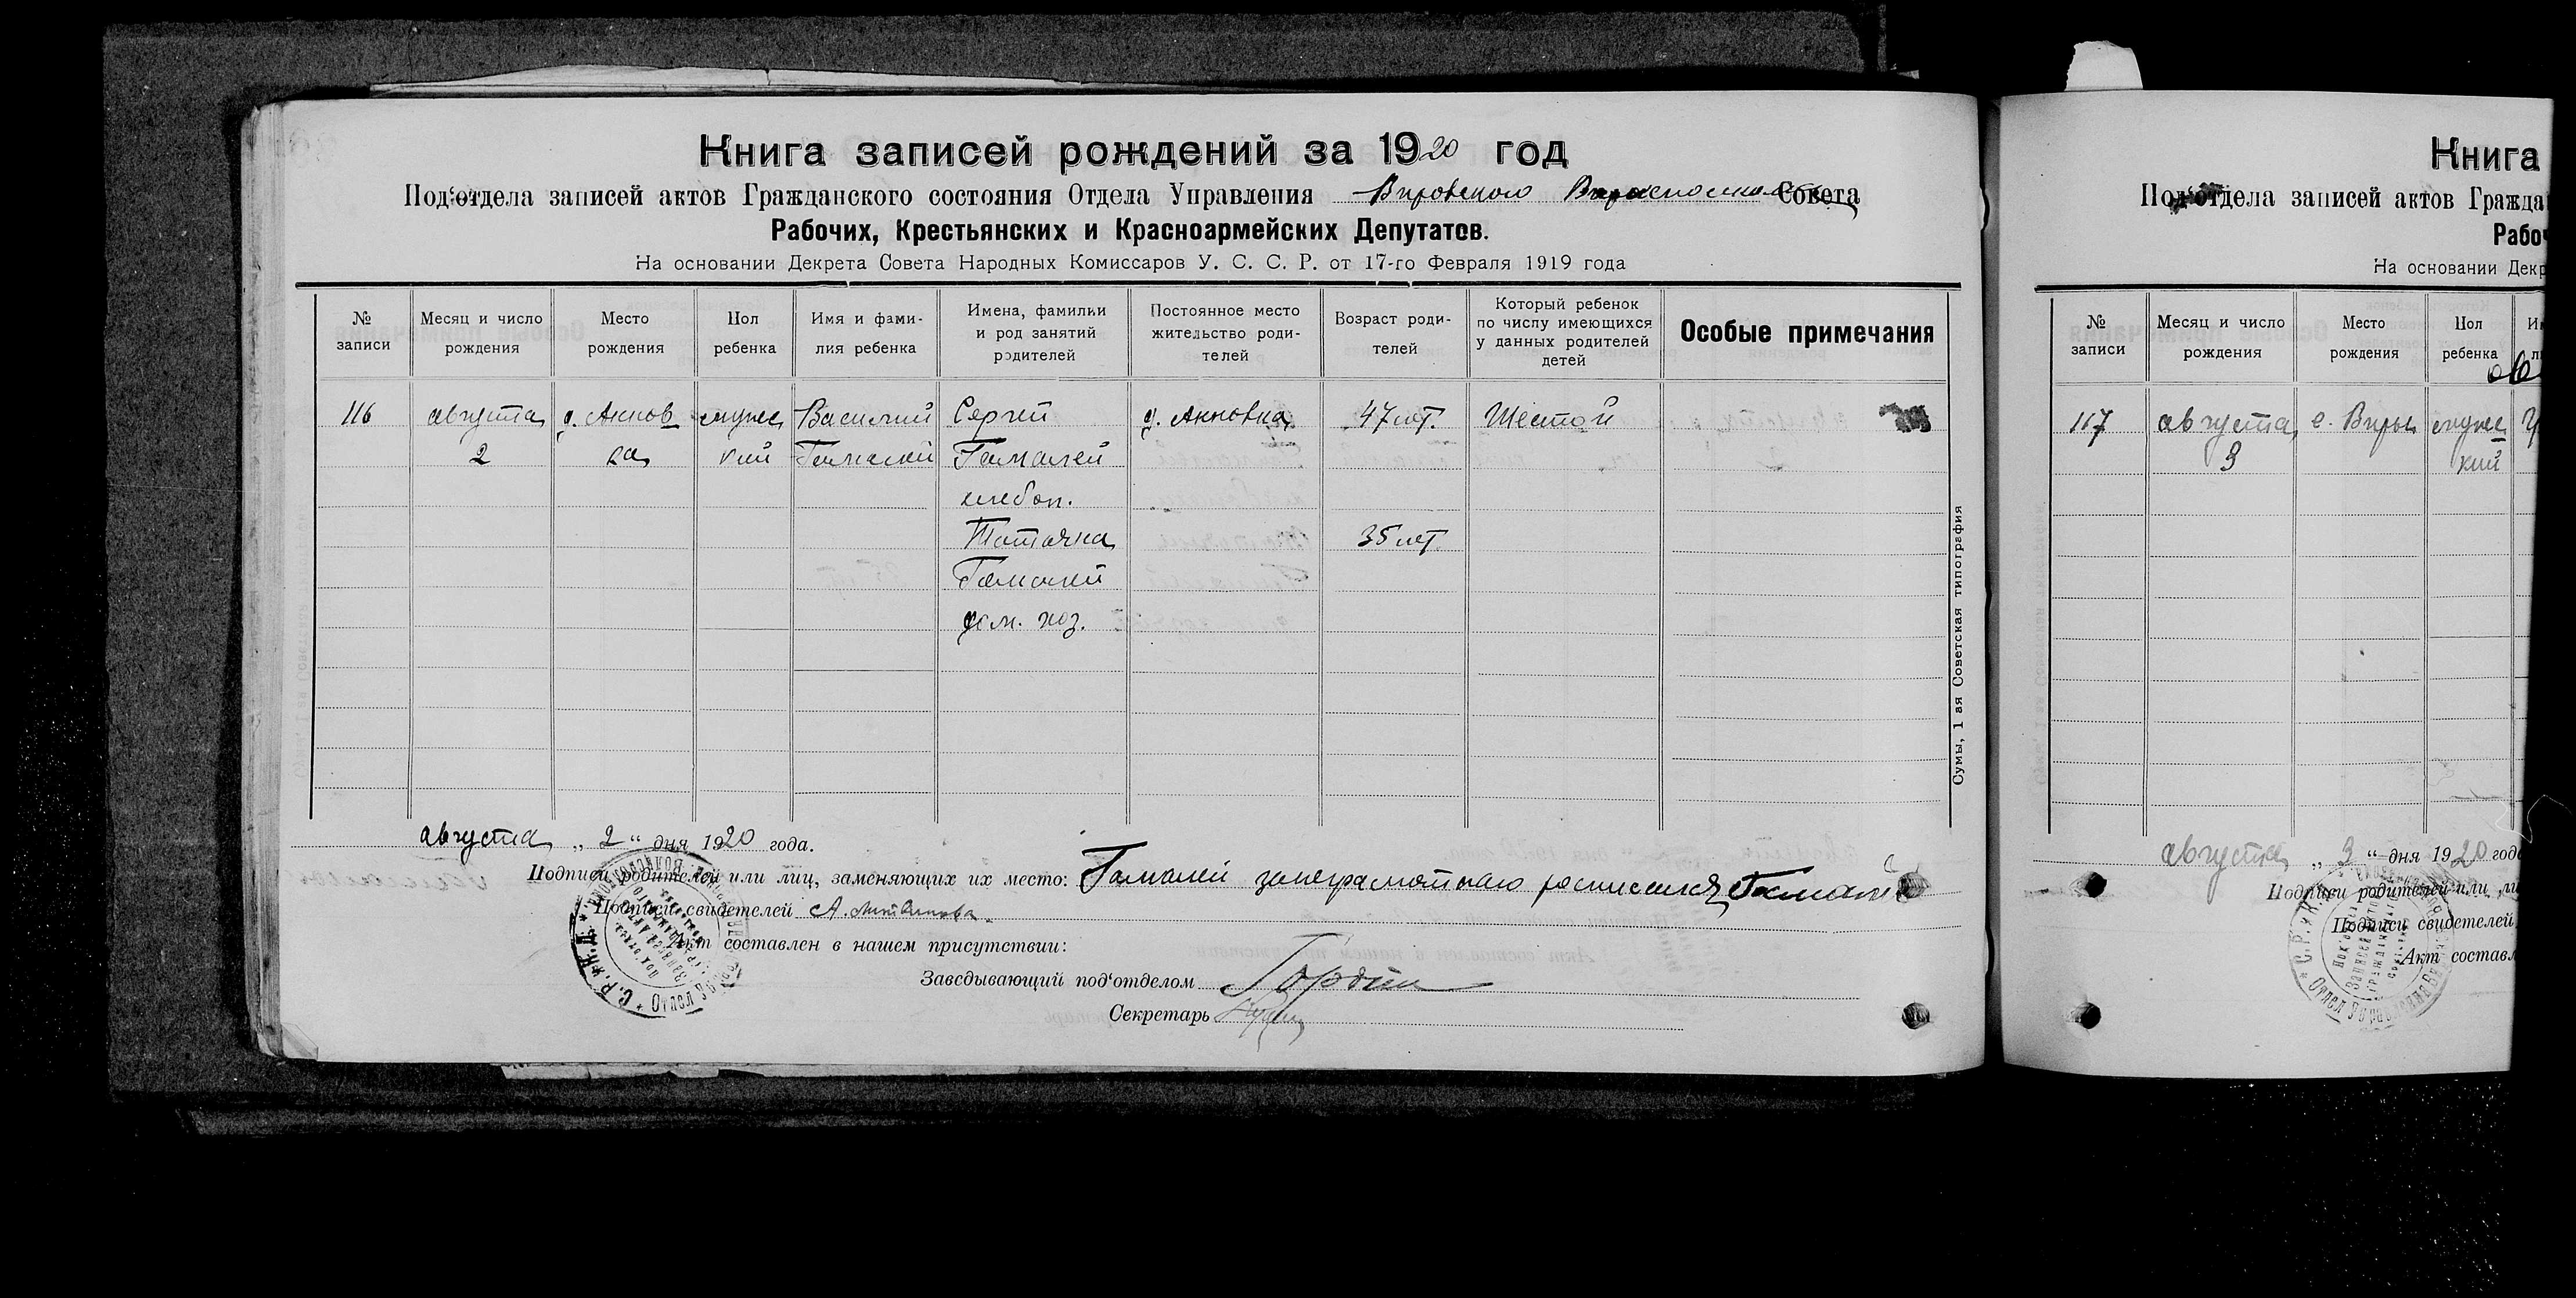 Книга записей рождений за 1920 год
Под‘отдела записей актов Гражданского состояния Отдела Управления Вировского Совета
Рабочих, Крестьянских и Красноармейских Депутатов.
На основании Декрета Совета Народных Комиссаров У. С. С. Р. от 17-го Февраля 1919 года
№ записи
Месяц и число рождения
Место рождения
Пол ребенка
Имя и фами-
лия ребенка
Имена, фамилии
и род занятий
родителей
Постоянное место
жительство роди-
телей
Возраст роди-
телей
Который ребенок
по числу имеющихся
у данных родителей
детей
Особые примечания
116 августа д. Аннов мужес Василий Сергей д. Анновка 47 лет. Шестой
2 ка кий Гамалей Гамалей
хлебоп.
Татьяна 35 лет.
Гамалей
дом. хоз.
Сумы, 1 ая Советская типография
августа „ 2 “ дня 1920 года.
Подписи родителей или лиц, заменяющих их место: Гамалей
Подписи свидетелей А.
Акт составлен в нашем присутствии:
Заведывающий под‘отделом
Секретарь
Книга
Под‘отдела записей актов Гражда
Рабоч
На основании Декр
№ записи
Месяц и число рождения
Место рождения
Пол ребенка
117 августа с. Виры мужес
3 кий
августа „ 3 “ дня 1920 год
Подписи родителей или ли
Подписи свидетелей
Акт составл